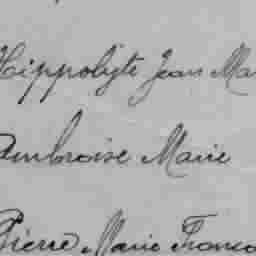 Hippolyte Jean Ma
Ambroise Marie
Pierre Marie Franco